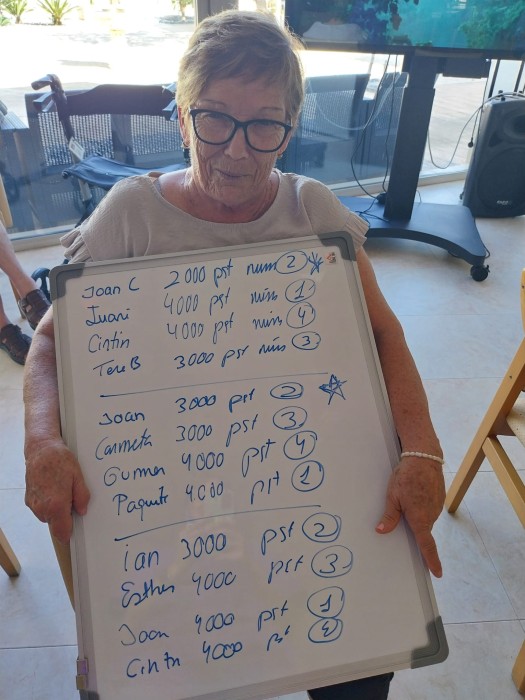 Joan C 2000 pst num 2
Juani 4000 pst núm 1
Cintin 4000 pst núm 4
Tere B 3000 pst núm 3
Joan 3000 pst 2
Carmeta 3000 pst 3
4000 pst 4
Paquita 4000 pst 1
Ian 3000 pst 2
Esther 4000 pst 3
Joan 4000 pst 1
Cintin 4000 pst 4